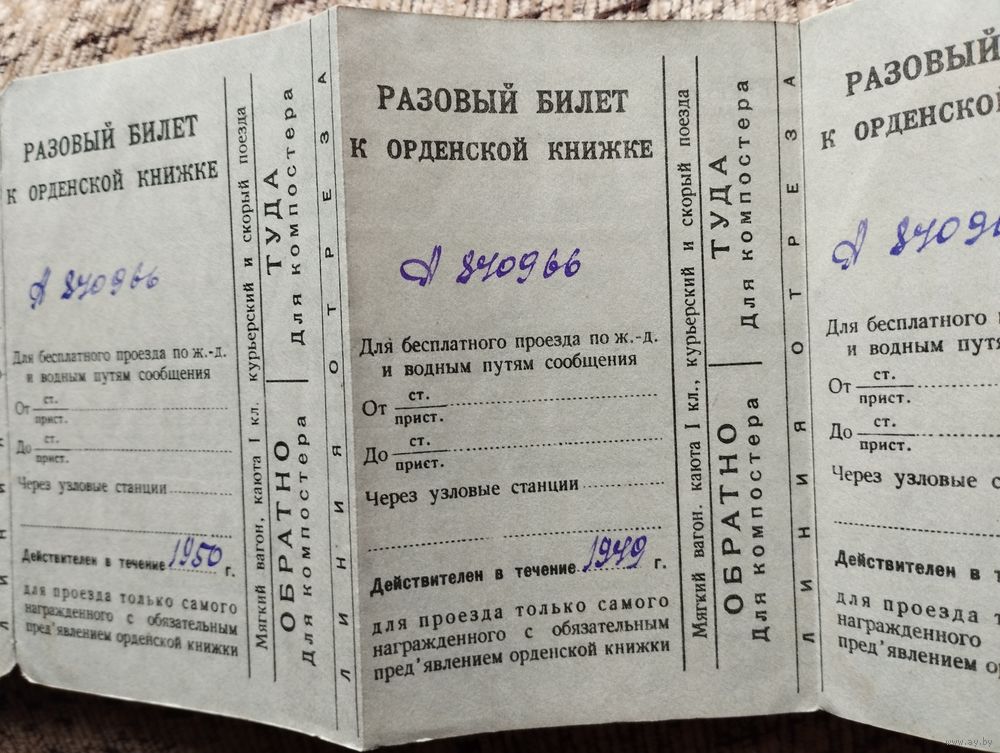 РАЗОВЫЙ БИЛЕТ
К ОРДЕНСКОЙ КНИЖКЕ
А 870966
Для бесплатного проезда по ж.-д.
и водным путям сообщения
От ст.
прист.
До ст.
прист.
Через узловые станции
Действителен в течение 1950 г.
для проезда только самого
награжденного с обязательным
пред'явлением орденской книжки
Мягкий вагон, каюта I кл. курьерский и скорый поезда
ТУДА
Для компостера
ОБРАТНО
Для компостера
ЛИНИЯ ОТРЕЗА
РАЗОВЫЙ БИЛЕТ
К ОРДЕНСКОЙ КНИЖКЕ
А 870966
Для бесплатного проезда по ж.-д.
и водным путям сообщения
От ст.
прист.
До ст.
прист.
Через узловые станции
Действителен в течение 1949 г.
для проезда только самого
награжденного с обязательным
пред'явлением орденской книжки
Мягкий вагон. каюта I кл., курьерский и скорый поезда
ТУДА
Для компостера
ОБРАТНО
Для компостера
ЛИНИЯ ОТРЕЗА
РАЗОВЫЙ
К ОРДЕНСКОЙ
А 8709
Для бесплатного
и водным
От ст.
прист.
До ст.
прист.
Через узловые
Действителен в
для проезда
награжденного
пред'явлением
www.ay.by